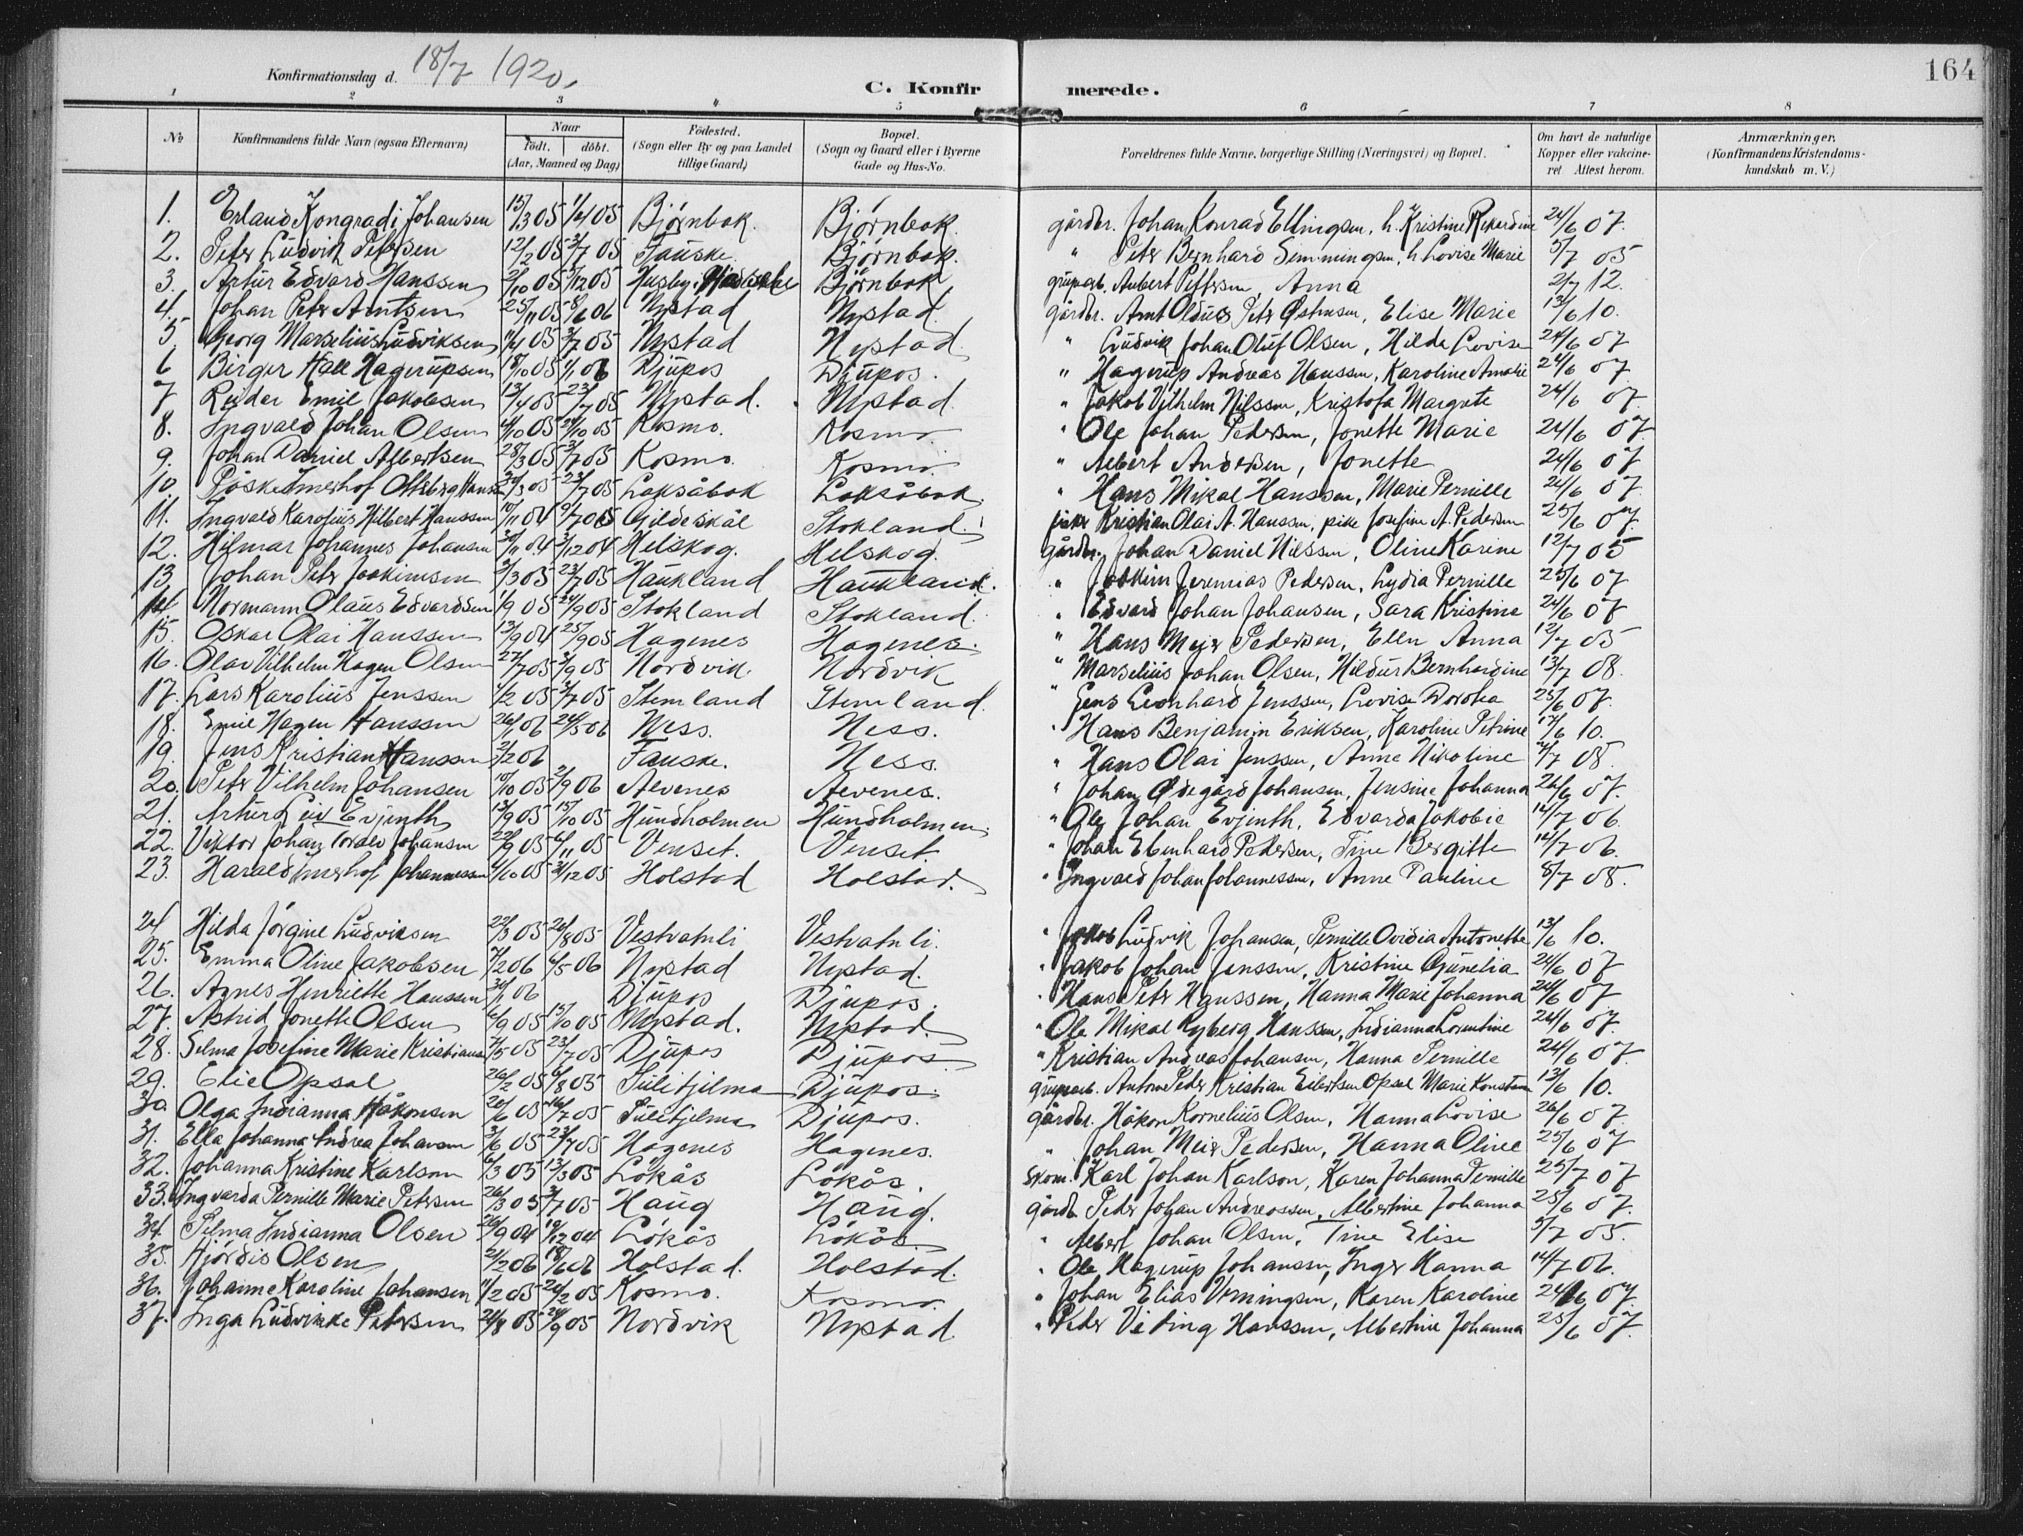 164
Konfirmationsdag d. 18/7 1920.
C. Konfirmerede.
1 2 3 4 5 6 7 8
No Konfirmandens fulde Navn (ogsaa Efternavn) Naar født. døbt. (Aar, Maaned og Dag) Födested. (Sogn eller By og paa Landet tillige Gaard) Bopæl. (Sogn og Gaard eller i Byerne Gade og Hus-No. Forældrenes fulde Navne, borgerlige Stilling (Næringsvei) og Bopæl. Om havt de naturlige Kopper eller vakcineret Attest herom. Anmærkninger. (Konfirmandens Kristendomskundskab m.V.)
1. Erland Kongradi Johansen 15/3 05 1/4 05 Bjørnbak. Bjørnbak. gårdbr. Johan Konrad Ellingsen, h. Kristine Rikardine 24/6 07.
2. Petr Ludvik Petersen 12/2 05 2/7 05 Fauske. Bjørnbak. " Petr Bernhard Semmingsen, h. Lovise Marie 5/7 05
3. Artur Edvard Hanssen 2/10 05 3/12 05 Husby i Bjørnbak grubearb. Anna 2/7 12.
4. Johan Petr Arntsen 25/11 05 8/6 06 Nystad Nystad. gårdbr. Arnt Petr Østensen, Elise Marie 13/6 10.
5. Georg Marselius Ludviksen 1/4 05 2/7 05 Nystad Nystad " Ludvik Johan Oluf Olsen, Hilda Lovise 24/6 07
6 Birger Hall Hagerupsen 18/10 05 1/1 06 Djupos Djupos. " Hagerup Andreas Hanssen, Karoline Amalie 24/6 07.
7 Reidar Emil Jakobsen 13/4 05 23/7 05 Nystad. Nystad. " Jakob Vilhelm Nilssen, Kristofa Margrete 24/6 07.
8. Ingvald Johan Olsen 4/10 05 29/10 05 Kosmo. Kosmo. " Ole Johan Pedersen, Jonette Marie 24/6 07.
9. Johan Daniel Albertsen 28/3 05 2/7 05 Kosmo. Kosmo. " Albert Andersen, Jonette 24/6 07.
10. Påske Imerhof Ottsberg Hansen 30/3 05 23/7 05 Laksåbak Laksåbak. " Hans Mikal Hanssen, Marie Pernille 24/6 07.
11. Ingvald Karolius Hilbert Hanssen 10/11 04 9/7 05 Gildeskål Stokland. fisker Kristian Olai A. Hanssen, pike Josefine A. Pedersen 25/6 07.
12. Hilmar Johannes Johansen 30/11 04 3/12 04 Helskog. Helskog. gårdbr. Johan Daniel Nilssen, Oline Karine 12/7 05
13. Johan Petr Joakimsen 2/3 05 23/7 05 Haukland Haukland. " Joakim Jeremias Pedersen, Lydia Pernille 25/6 07
14. Normann Olaus Edvardsen 1/9 05 24/9 05 Stokland Stokland. " Edvard Johan Johansen, Sara Kristine 24/6 07
15. Oskar Olai Hanssen 12/9 04 25/9 05 Hagenes Hagenes. " Hans Meyer Pedersen, Ellen Anna 12/7 05
16. Olav Vilhelm Hagen Olsen 27/7 05 3/9 05 Nordvik. Nordvik " Marselius Johan Olsen, Hildur Bernhardine 13/7 08.
17. Lars Karolius Jenssen 1/2 05 2/7 05 Stemland Stemland. " Jens Leonhard Jenssen, Lovise Dorotea 25/6 07.
18. Emil Hagen Hanssen 26/1 06 24/5 06 Ness. Ness. " Hans Benjamin Eriksen, Karoline Petrine 17/6 10.
19. Jens Kristian Hanssen 2/2 06 Fauske. Ness. " Hans Olai Jenssen, Anne Nikoline 4/7 08.
20. Petr Vilhelm Johansen 10/10 05 2/9 06 Alvenes Alvenes. " Johan Ødegård Johansen, Jensine Johanna 26/6 07.
21. Artur Leiv Evjenth 13/9 05 15/10 05 Hundholmen Hundholmen. " Ole Johan Evjenth, Edvarda Jakobie 14/7 06.
22. Viktor Johan Toralv Johansen 22/9 05 6/11 05 Venset. Venset. " Johan Edenhard Pedersen, Tine Bergitte 14/7 06.
23. Harald Imerhof Johannessen 4/10 05 31/12 05 Holstad Holstad. " Ingvald Johan Johannessen, Anne Pauline 8/7 08.
24 Hilda Jørgine Ludviksen 22/3 05 20/8 05 Vestvatnli Vestvatnli. " Jakob Ludvik Johansen, Pernille Ovidia Antonette 13/6 10.
25. Emma Oline Jakobsen 7/2 06 4/5 06 Nystad Nystad. " Jakob Johan Jenssen, Kristine Gunelia 24/6 07
26. Agnes Henriette Hanssen 30/1 06 Djupos Djupos. " Hans Petr Hanssen, Hanna Marie Johanna 24/6 07
27. Astrid Jonette Olsen 6/9 05 15/10 05 Nystad. Nystad. " Ole Mikal Nyberg Hanssen, Indianna Lorentine 24/6 07.
28. Selma Josefine Marie Kristiansen 7/5 05 23/7 05 Djupos Djupos. " Kristian Andreas Johansen, Hanna Pernille 24/6 07
29. Elie Opsal 26/2 05 6/8 05 Sulitjelma Djupos. grubearb. Anton Peder Kristian Eilertsen Opsal Marie 13/6 10.
30. Olga Indianna Håkonsen 20/6 05 16/7 05 Sulitjelma Djupos. gårdbr. Håkon Kornelius Olsen, Hanna Lovise 26/6 07
31. Ella Johanna Andrea Johansen 3/6 05 23/7 05 Hagenes Hagenes. " Johan Meier Pedersen, Hanna Oline 25/6 07
32. Johanna Kristine Karlson 6/3 05 13/3 05 Løkås Løkås. skom. Karl Johan Karlson, Karen Johanna Pernille 25/7 07
33. Ingvarda Pernille Marie Petersen 26/3 05 2/7 05 Haug Haug. gårdb. Peder Johan Andreassen, Albertine Johanna 25/6 07.
34. Selma Indianna Olsen 26/9 04 19/12 04 Løkås Løkås. " Albert Johan Olsen, Tine Elise 5/7 05.
35. Hjørdis Olsen 21/2 06 18/6 06 Holstad. Holstad. " Ole Hagerup Johanssen, Inger Hanna 14/7 06.
36. Johanne Karoline Johansen 11/2 05 20/2 05 Kosmo. Kosmo. " Johan Elias Verningsen, Karen Karoline 24/6 07
37. Inga Ludvikke Petersen 24/8 05 24/9 05 Nordvik Nystad. " Peder Veding Hanssen, Albertine Johanna 25/6 07.